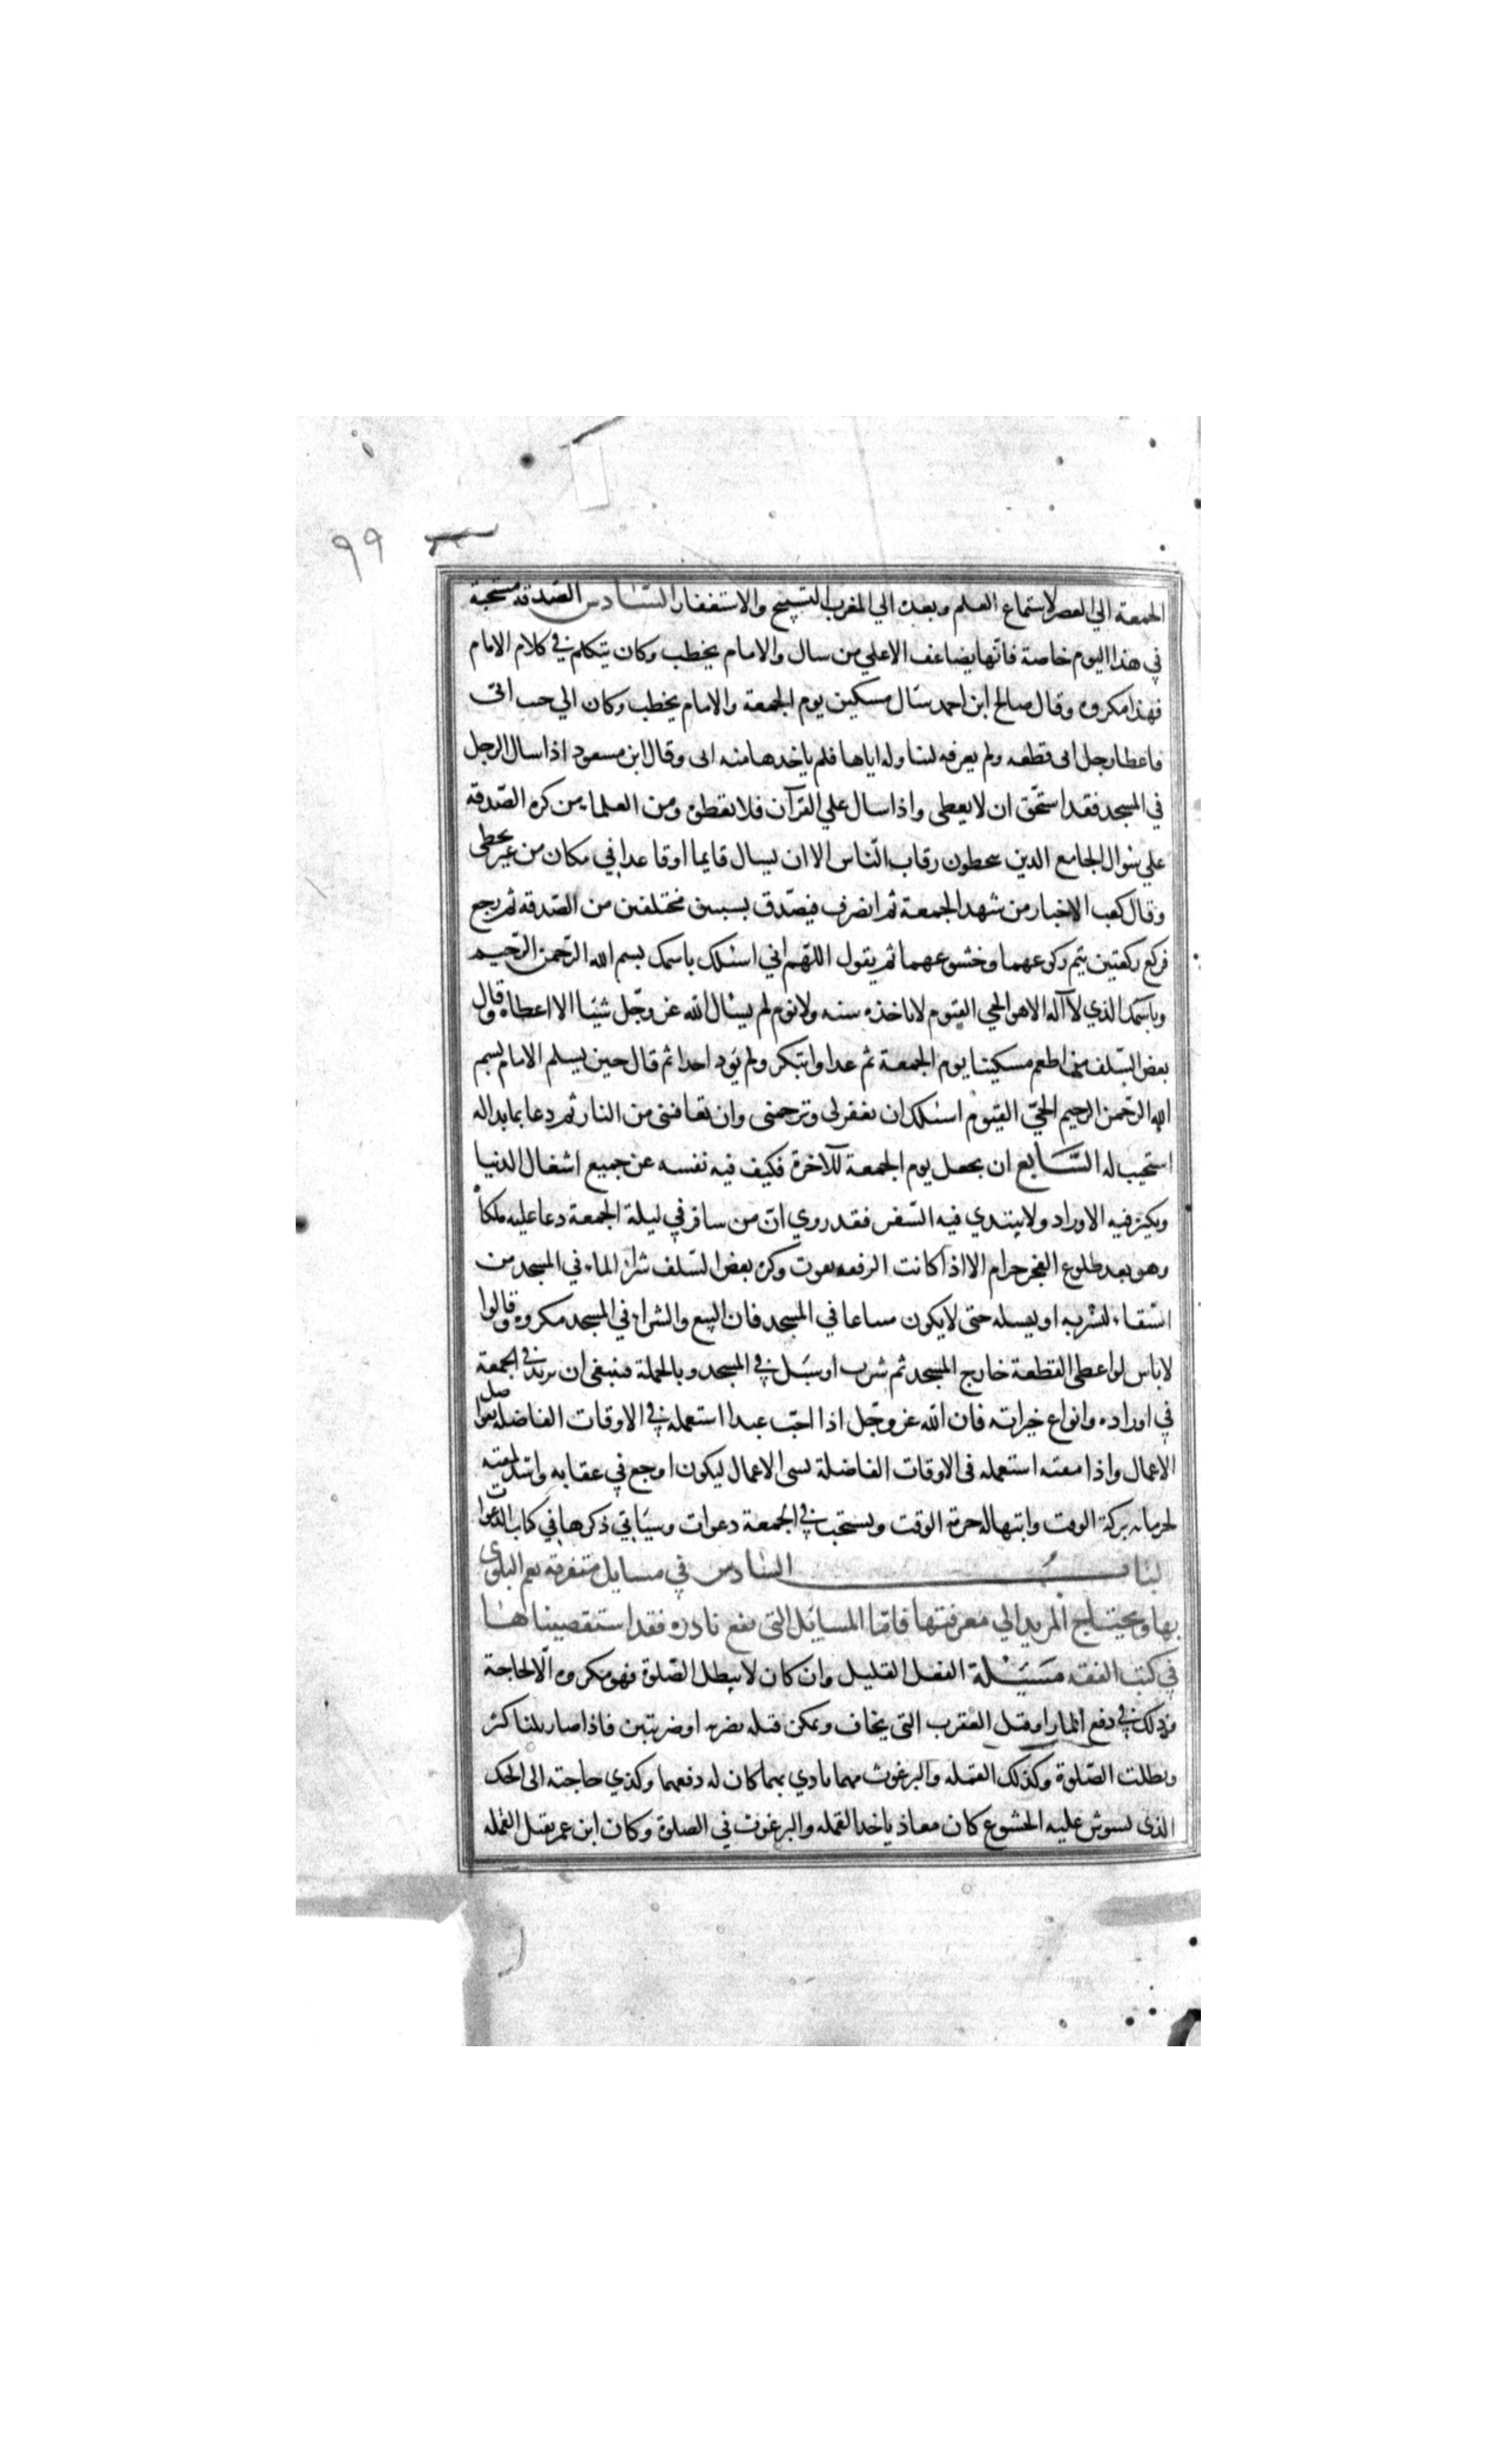 ٩٩
الجمعة الي العصر لاستماع العلم وبعدت الي المغرب التسبيح والاستغفار السّادس الصّدقة مستحبة
في هذا اليوم خاصة فانّها يضاعف الاعلي من سال والامام يخطب وكان يتكلم في كلام الامام
فهذا مكروه وقال صالح ابن احمد سال مسكين يوم الجمعة والامام يخطب وكان الي جب ابى
فاعطا رجل ابى قطعه ولم يعرفه ليناوله اياها فلم ياخدها منه ابى وقال ابن مسعود اذا سال الرجل
في المسجد فقد استحّق ان لا يعطى واذا سال علي القرآن فلا تعطوه ومن العلماء من كره الصّدقه
علي سُوال الجامع الدين يتحطون رقاب النّاس الا ان يسال قايما او قاعدا في مكان من غير يحطى
وقال كعب الاخبار من شهد الجمعة ثم انصرف فيصّدق بسيين مختلفين من الصّدقه ثم رجع
فركع ركعتين يتم ركوعهما وخشوعهما ثم يقول اللهّم اني اسئلك باسمك بسم الله الرّحمن الرّحيم
وباسمك الذي لا آله الا هو الحي القيوم لا تاخذه سنه ولا نوم لم يسْال الله عز وجّل شيئا الا اعطاه وقال
بعض السّلف من اطعم مسكينا يوم الجمعة ثم غدا وابتكر ولم يَوذ احدا ثم قال حين يسلم الامام بسم
الله الرّحمن الرحيم الحيّ القيّوم اسئلك ان تغفر لى وترحمنى وان تعافنى من النار ثم دعا بما بدا له
استجيب له السَّابع ان يجعل يوم الجمعة للآخرة فكيف فيه نفسه عن جميع اشغال الدنيا
ويكثر فيه الاوراد ولا يبتدي فيه السّفر فقد روي انّ من سافر في ليلة الجمعة دعا عليه ملكاه
وهو بعد طلوع الفجر حرام الا اذا كانت الرفعه تفوت وكره بعض السّلف شراء الماء في المسجد من
السّقاء ليشربه او يسبله حتى لا يكون مبتاعا في المسجد فان البيع والشراء في المسجد مكروه وقالوا
لا باس لو اعطى القطعة خارج المسجد ثم شرب او سبّل في المسجد وبالجملة فينبغى ان يزيد في الجمعة
في اوراده وانواع خيراته فان اللّه عز وجّل اذا احبّ عبدا استعمله في الاوقات الفاضله بفواضل
الاعمال واذا مقته استعمله فى الاوقات الفاضلة بسى الاعمال ليكون اوجع في عقابه واشد لمقته
لحرمانه بركة الوقت وانتهاكه حرمة الوقت ويستحب في الجمعة دعوات وسيَاتي ذكرها في كتاب الدعوات
لبابُ السّادس في مسايل متفرقه يعم البلوى
بها ويحتاج المريد الي معرفتها فامّا المسايل التى يقع نادره فقد استقصيناها
في كتب الفقه مَسَيْلة الفعل القليل وان كان لا يبطل الصّلوة فهو مكروه الّا لحاجة
وذلك في دفع المار او قتل العقرب التى يخاف ويمكن قتله بضربه او ضربتين فاذا صار ثلثا كثر
وبطلت الصّلوة وكذلك القمله والبرغوث مهما تادي بهما كان له دفعهما وكذي حاجته الى الحك
الذى يسوش عليه الخشوع كان معاذ ياخد القمله والبرغوث في الصلوة وكان ابن عمر يقتل القمله